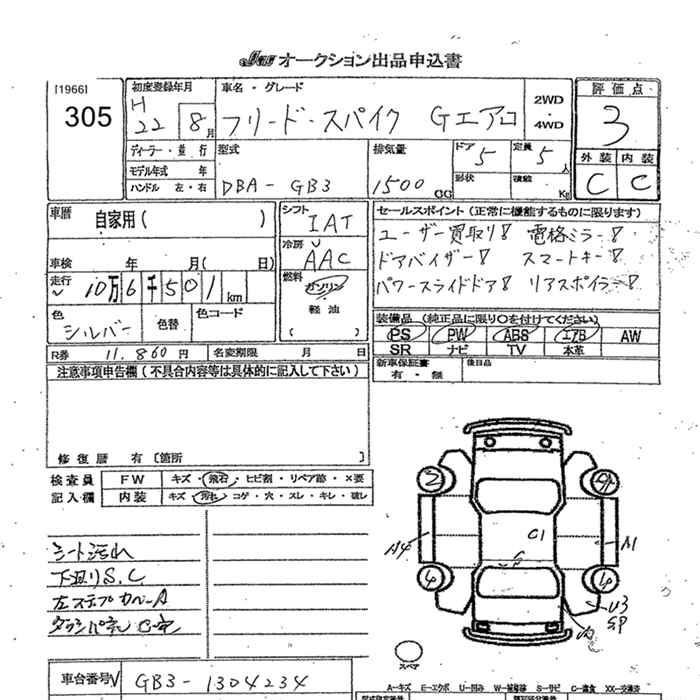 JU オークション出品申込書
[1966]
305
初度登録年月
H
22 8月
車名・グレード
フリード・スパイク Gエアロ
2WD
・
4WD
評価点
3
外装 内装
C C
ディーラー・並行
モデル年式 年
ハンドル 左・右
型式
DBA-GB3
排気量
1500 CC
ドア 5
定員 5人
形状
積載 Kg
車歴 自家用( )
シフト
IAT
冷房
AAC
燃料
ガソリン
軽油
( )
車検 年 月( 日)
走行
10万6千501km
色
シルバー
色替
色コード
R券 11,860円 名変期限 月 日
セールスポイント(正常に機能するものに限ります)
ユーザー買取り! 電格ミラー!
ドアバイザー! スマートキー!
パワースライドドア! リアスポイラー!
装備品(純正品に限り○を付けてください)
PS PW ABS エアB AW
SR ナビ TV 本革
新車保証書
有・無
後日品
注意事項申告欄(不具合内容等は具体的に記入して下さい)
修復暦 有〔箇所 〕
検査員
記入欄
FW キズ・飛石・ヒビ割・リペア跡・×要
内装 キズ・汚れ・コゲ・穴・スレ・キレ・破レ
シート汚れ
下廻りS.C
左ステップカバーA
車台番号 GB3-1304234
A4
C1
A1
U3
スペア
A-キズ E-エクボ U-凹み W-補修跡 S-サビ C-腐食 XX-交換済